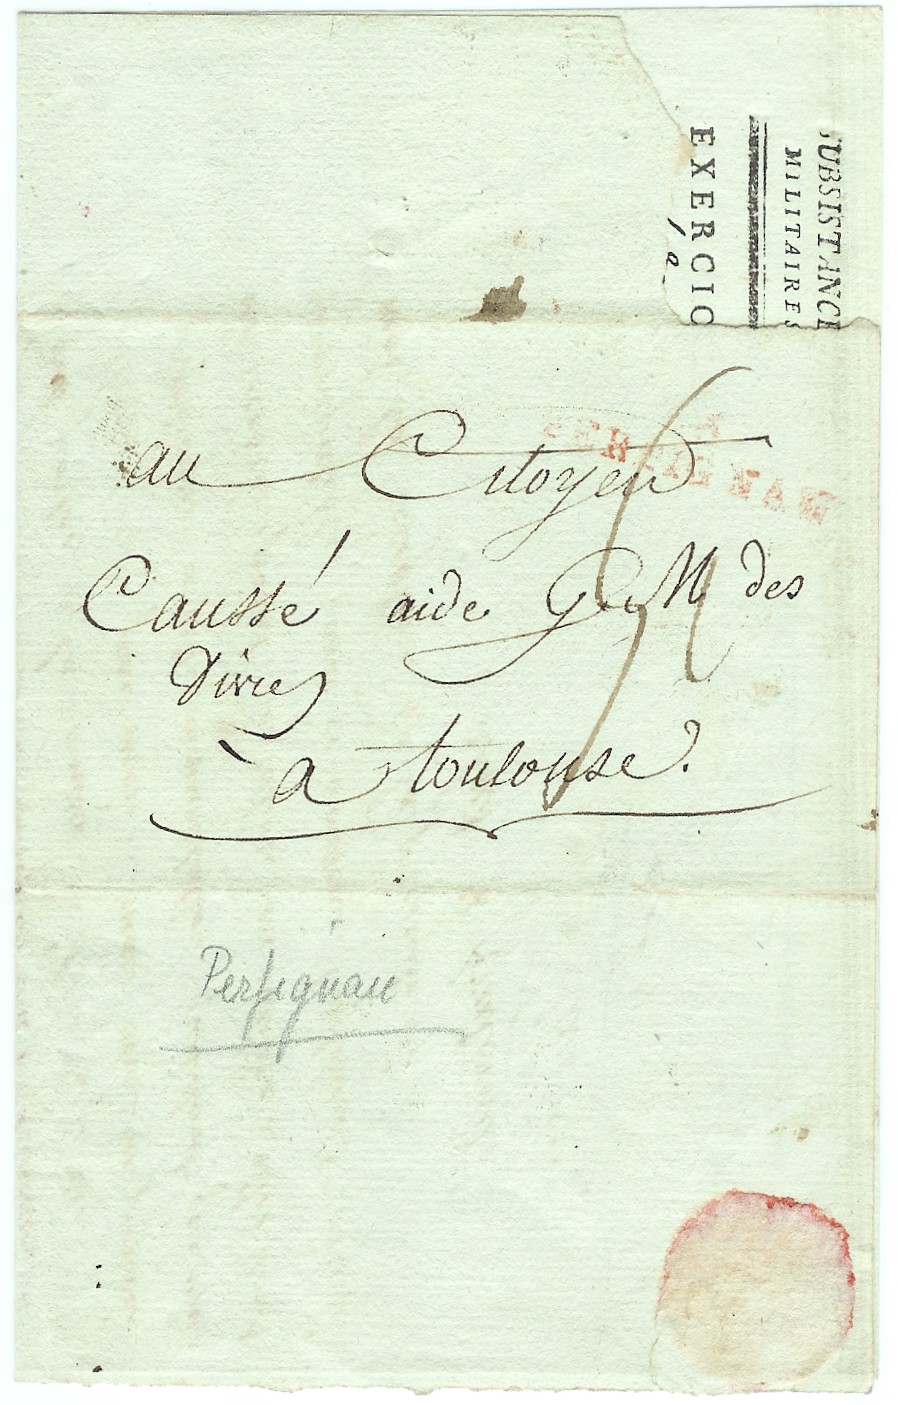 SUBSISTANCE
MILITAIRES
EXERCIC
au Citoyen
PERPIGNAN
Caussé aide G M des
Vivres
à toulouse
Perpignan